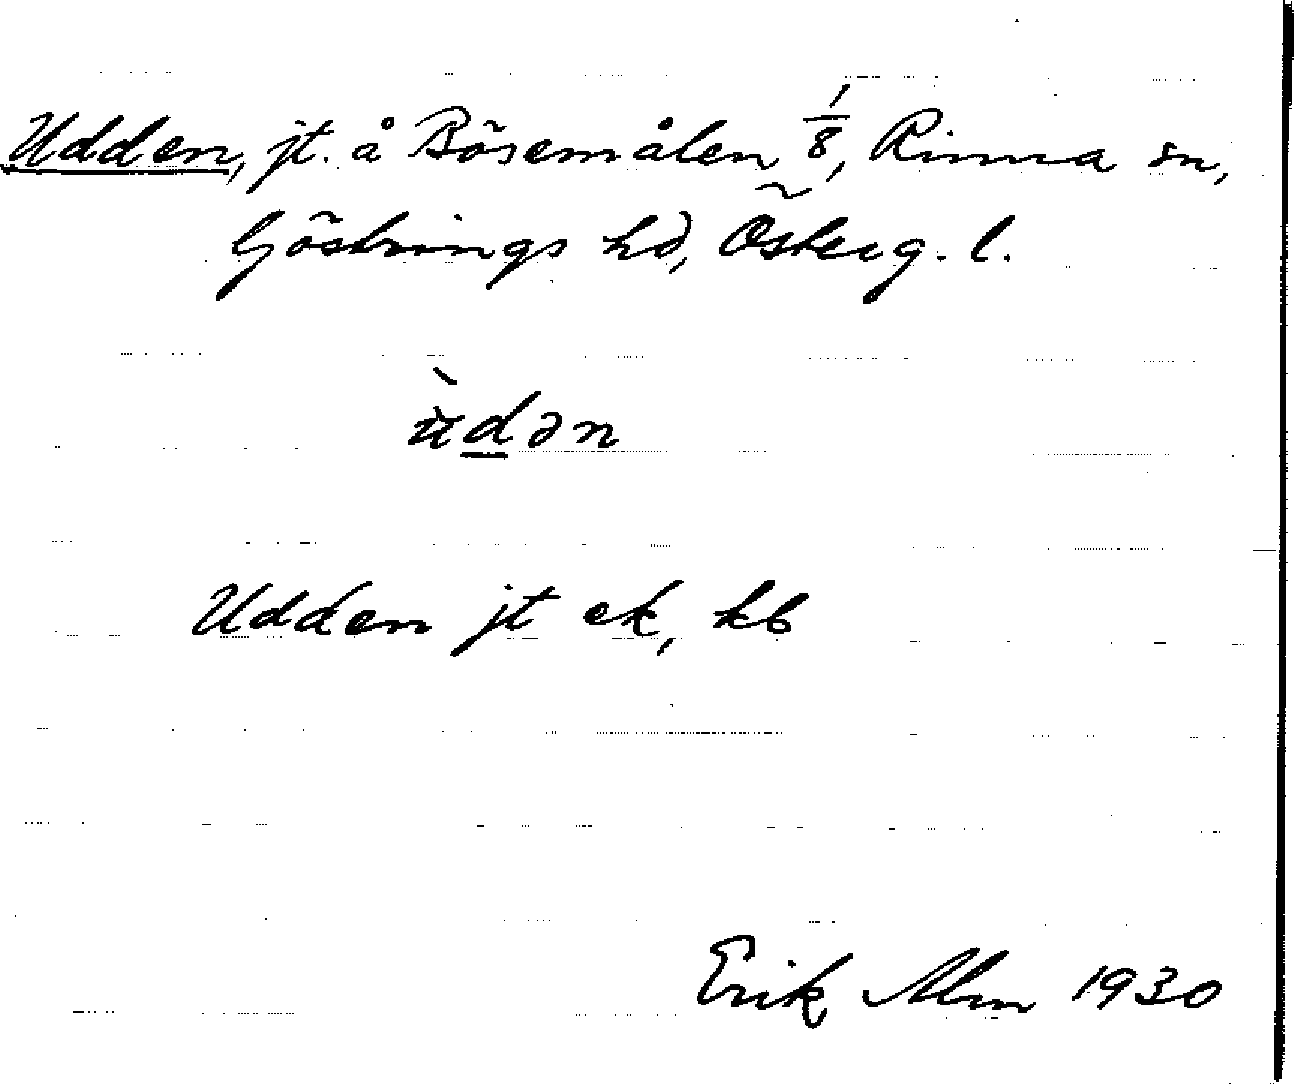 Udden, jt. å Bösemålen 1/8, Rinna sn,
Göstrings hd, Österg. l.
ǜdən
Udden jt ek, kb
Erik Alm 1930